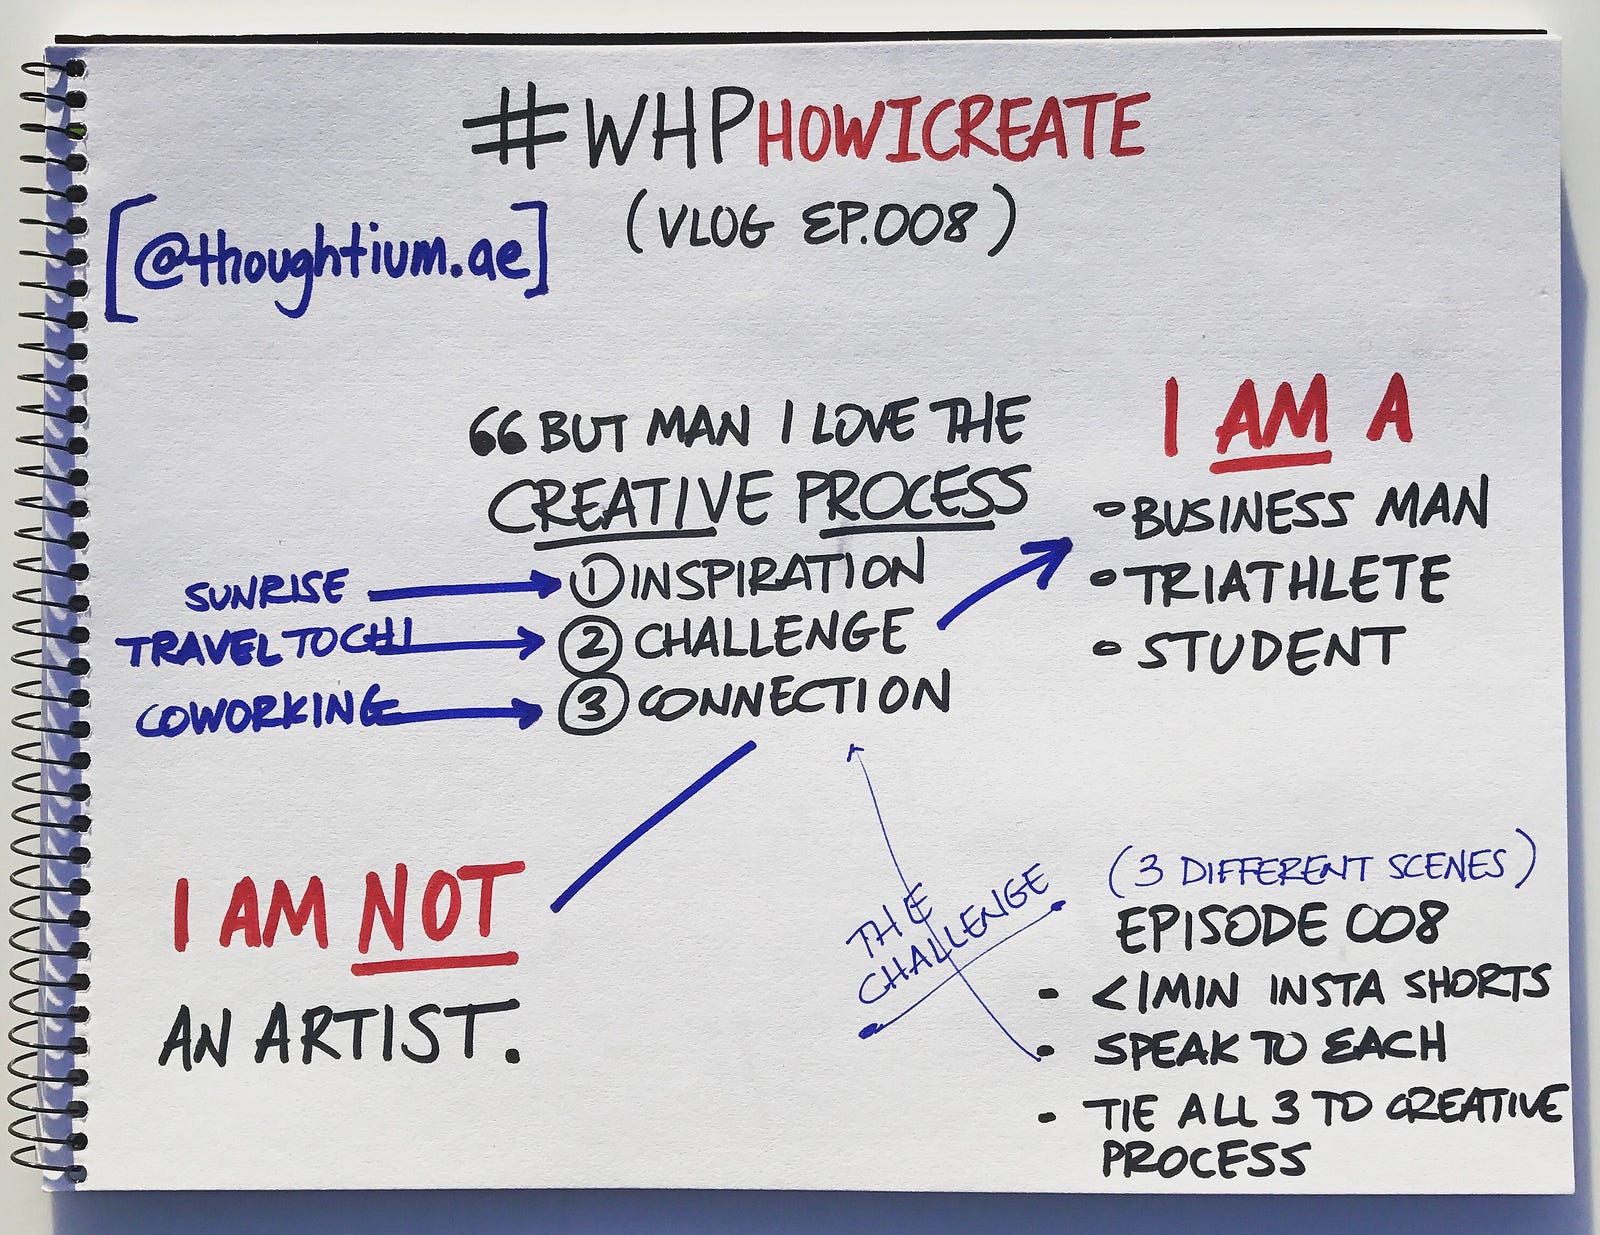 #WHPHOWICREATE
(VLOG EP.008)
[@thoughtium.ae]
“BUT MAN I LOVE THE
CREATIVE PROCESS
SUNRISE
① INSPIRATION
TRAVEL TO CHI
② CHALLENGE
COWORKING
③ CONNECTION
I AM A
BUSINESS MAN
TRIATHLETE
STUDENT
I AM NOT
AN ARTIST.
THE
CHALLENGE
(3 DIFFERENT SCENES)
EPISODE 008
- <1MIN INSTA SHORTS
- SPEAK TO EACH
- TIE ALL 3 TO CREATIVE
PROCESS